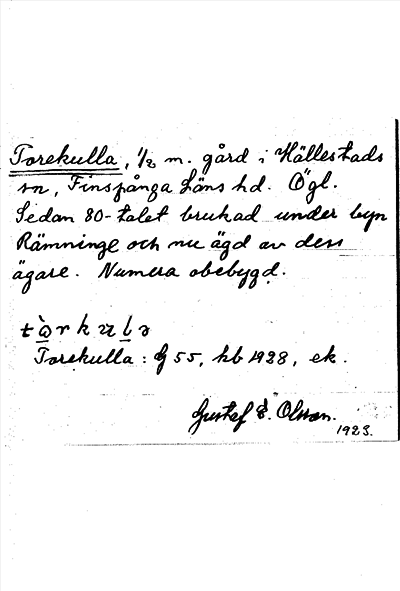 Torekulla, 1/2 m. gård i Hällestads
sn, Finspånga Läns hd. Ögl.
Sedan 80-talet brukad under byn
Rämninge och nu ägd av dess
ägare. Numera obebygd.
Torekulla: G 55, kb 1928, ek.
Gustaf E. Olsson.
1923.